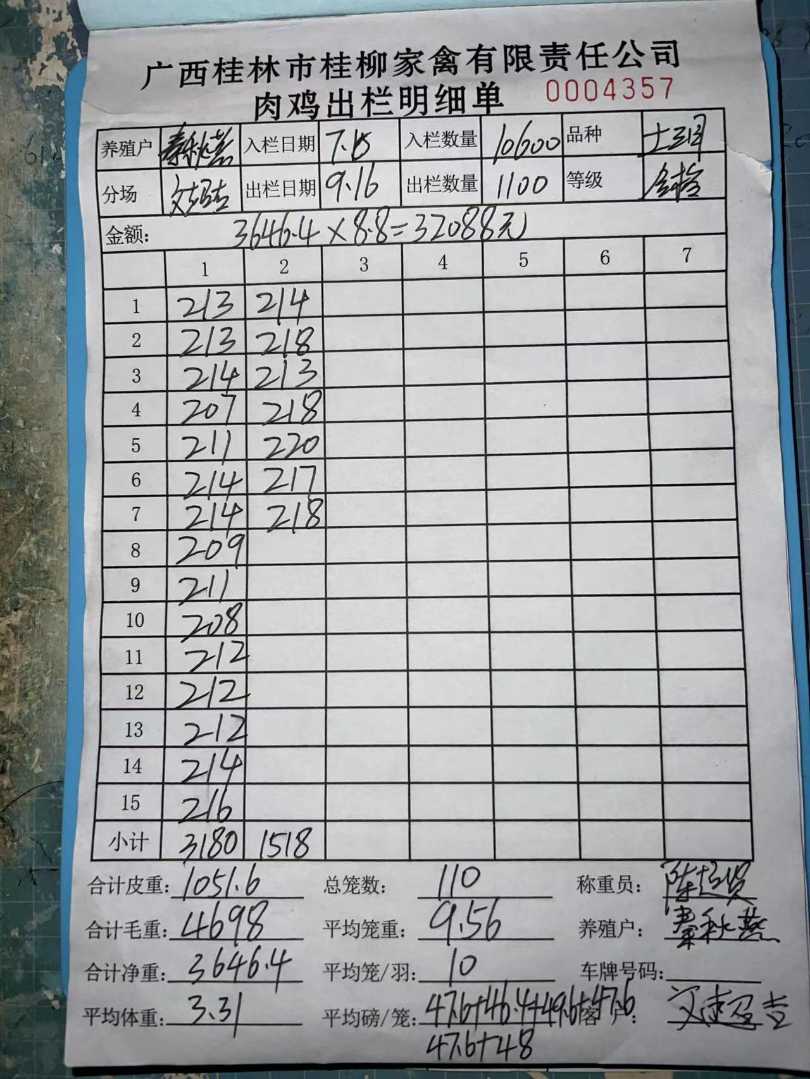 广西桂林市桂柳家禽有限责任公司
肉鸡出栏明细单 0004357
养殖户 秦秋燕 入栏日期 7.15 入栏数量 10600 品种
分场 出栏日期 9.16 出栏数量 1100 等级
金额: 3646.4×8.8=32088元
1 2 3 4 5 6 7
1 213 214
2 213 218
3 214 213
4 207 218
5 211 220
6 214 217
7 214 218
8 209
9 211
10 208
11 212
12 212
13 212
14 214
15 216
小计 3180 1518
合计皮重: 1051.6 总笼数: 110 称重员:
合计毛重: 4698 平均笼重: 9.56 养殖户: 秦秋燕
合计净重: 3646.4 平均笼/羽: 10 车牌号码:
平均体重: 3.31 平均磅/笼: 47.6+46.4+49.6+47.6 客户:
47.6+48